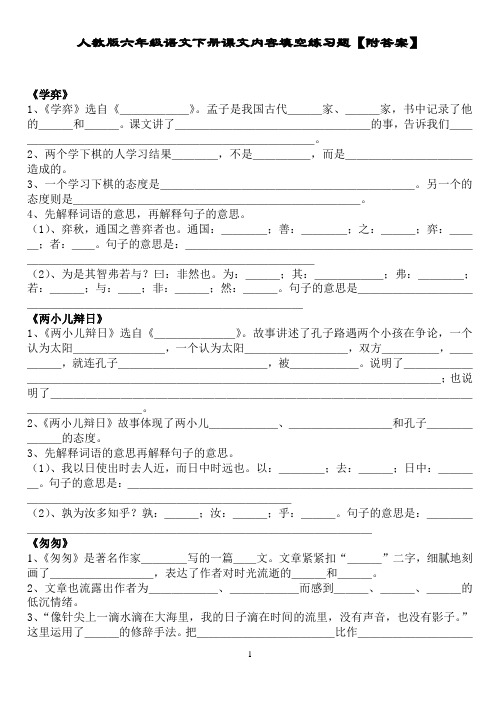 人教版六年级语文下册课文内容填空练习题【附答案】
《学弈》
1、《学弈》选自《____________》。孟子是我国古代______家、______家，书中记录了他
的______和______。课文讲了__________________________________的事，告诉我们____
__________________________________________________。
2、两个学下棋的人学习结果________，不是__________，而是______________________
造成的。
3、一个学习下棋的态度是____________________________________________。另一个的
态度则是__________________________________________________。
4、先解释词语的意思，再解释句子的意思。
（1）、弈秋，通国之善弈者也。通国：________；善：________；之：______；弈：____
__；者：____。句子的意思是：__________________________________________________
__________________________________________________
（2）、为是其智弗若与？曰：非然也。为：______；其：____________；弗：________；
若：______；与：____；非：______；然：______。句子的意思是____________________
________________________________________________
《两小儿辩日》
1、《两小儿辩日》选自《______________》。故事讲述了孔子路遇两个小孩在争论，一个
认为太阳________________，一个认为太阳__________________，双方__________，____
______，就连孔子__________________________，被____________。说明了____________
________________________________________________________________________；也说
明了__________________________________________________________________________
____________________。
2、《两小儿辩日》故事体现了两小儿____________、__________________和孔子________
______的态度。
3、先解释词语的意思再解释句子的意思。
（1）、我以日使出时去人近，而日中时远也。以：________；去：______；日中：______
__。句子的意思是：____________________________________________________________
______________________________________________
（2）、孰为汝多知乎？孰：______；汝：______；乎：______。句子的意思是：________
____________________________________________________________
《匆匆》
1、《匆匆》是著名作家________写的一篇____文。文章紧紧扣“______”二字，细腻地刻
画了__________________，表达了作者对时光流逝的______和______。
2、文章也流露出作者为____________、____________而感到______、______、______的
低沉情绪。
3、“像针尖上一滴水滴在大海里，我的日子滴在时间的流里，没有声音，也没有影子。”
这里运用了______的修辞手法。把________________________比作____________________
1